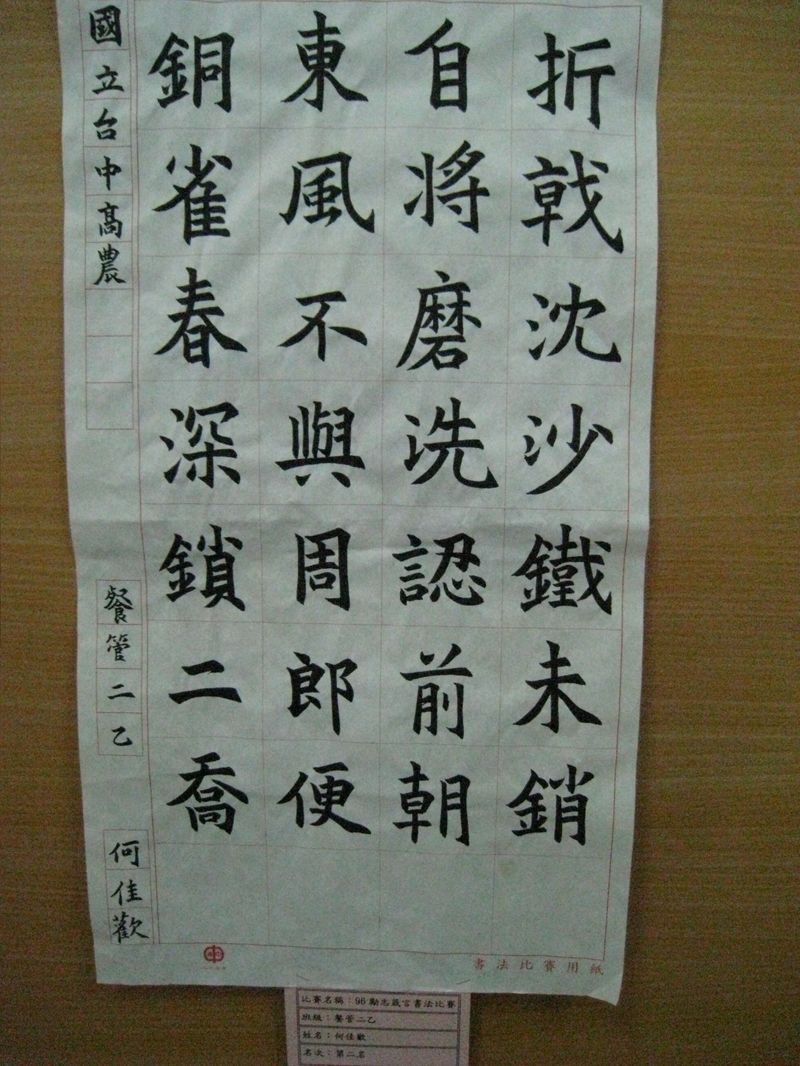 折戟沈沙鐵未銷
自將磨洗認前朝
東風不與周郎便
銅雀春深鎖二喬
國立台中高農
餐管二乙
何佳歡
書法比賽用紙
比賽名稱：96勵志箴言書法比賽
班級：餐管二乙
姓名：何佳歡
名次：第二名